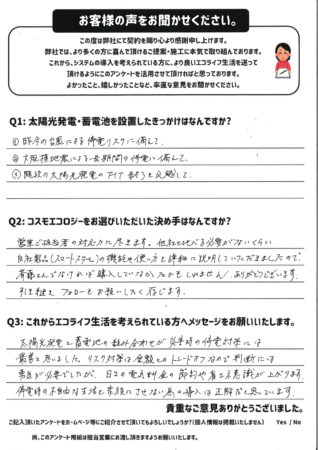 お客様の声をお聞かせください。
この度は弊社にて契約を賜り心より感謝申し上げます。
弊社では、より多くの方に喜んで頂けるご提案・施工に本気で取り組んでおります。
これから、システムの導入を考えられている方に、より良いエコライフ生活を送って
頂けるようにこのアンケートを活用させて頂ければと思っております。
よかったこと、嬉しかったことなど、率直な意見をお聞かせください。
Q1: 太陽光発電・蓄電池を設置したきっかけはなんですか?
① 昨今の台風による停電リスクに備えて。
② 大規模地震による長期間の停電に備えて。
③ 既設の太陽光発電の
Q2: コスモエコロジーをお選びいただいた決め手はなんですか?
営業ご担当者の対応力に尽きます。他社と比べる必要がないくらい
自社製品(スマートスター)の機能や使い方を詳細に説明していただきましたので、
斉藤さんでなければ導入していなかったかもしれません。ありがとうございます。
引き続き、フォローをお願いしたく存じます。
Q3: これからエコライフ生活を考えられている方へメッセージをお願いいたします。
太陽光発電と蓄電池の組み合わせが災害時の停電対策には
最善と思いました。リスク対策は金額とのトレードオフなので判断には
勇気が必要でしたが、日々の電気料金の節約や省エネ意識が上がります。
停電時の不自由な生活を家族にさせない為の導入は正解だと思っています。
貴重なご意見ありがとうございました。
ご記入頂いたアンケートをホームページ等にご紹介させて頂いてもよろしいでしょうか?(個人情報は掲載いたしません) Yes / No
尚、このアンケート用紙は担当営業にお渡し頂きますようお願いいたします。